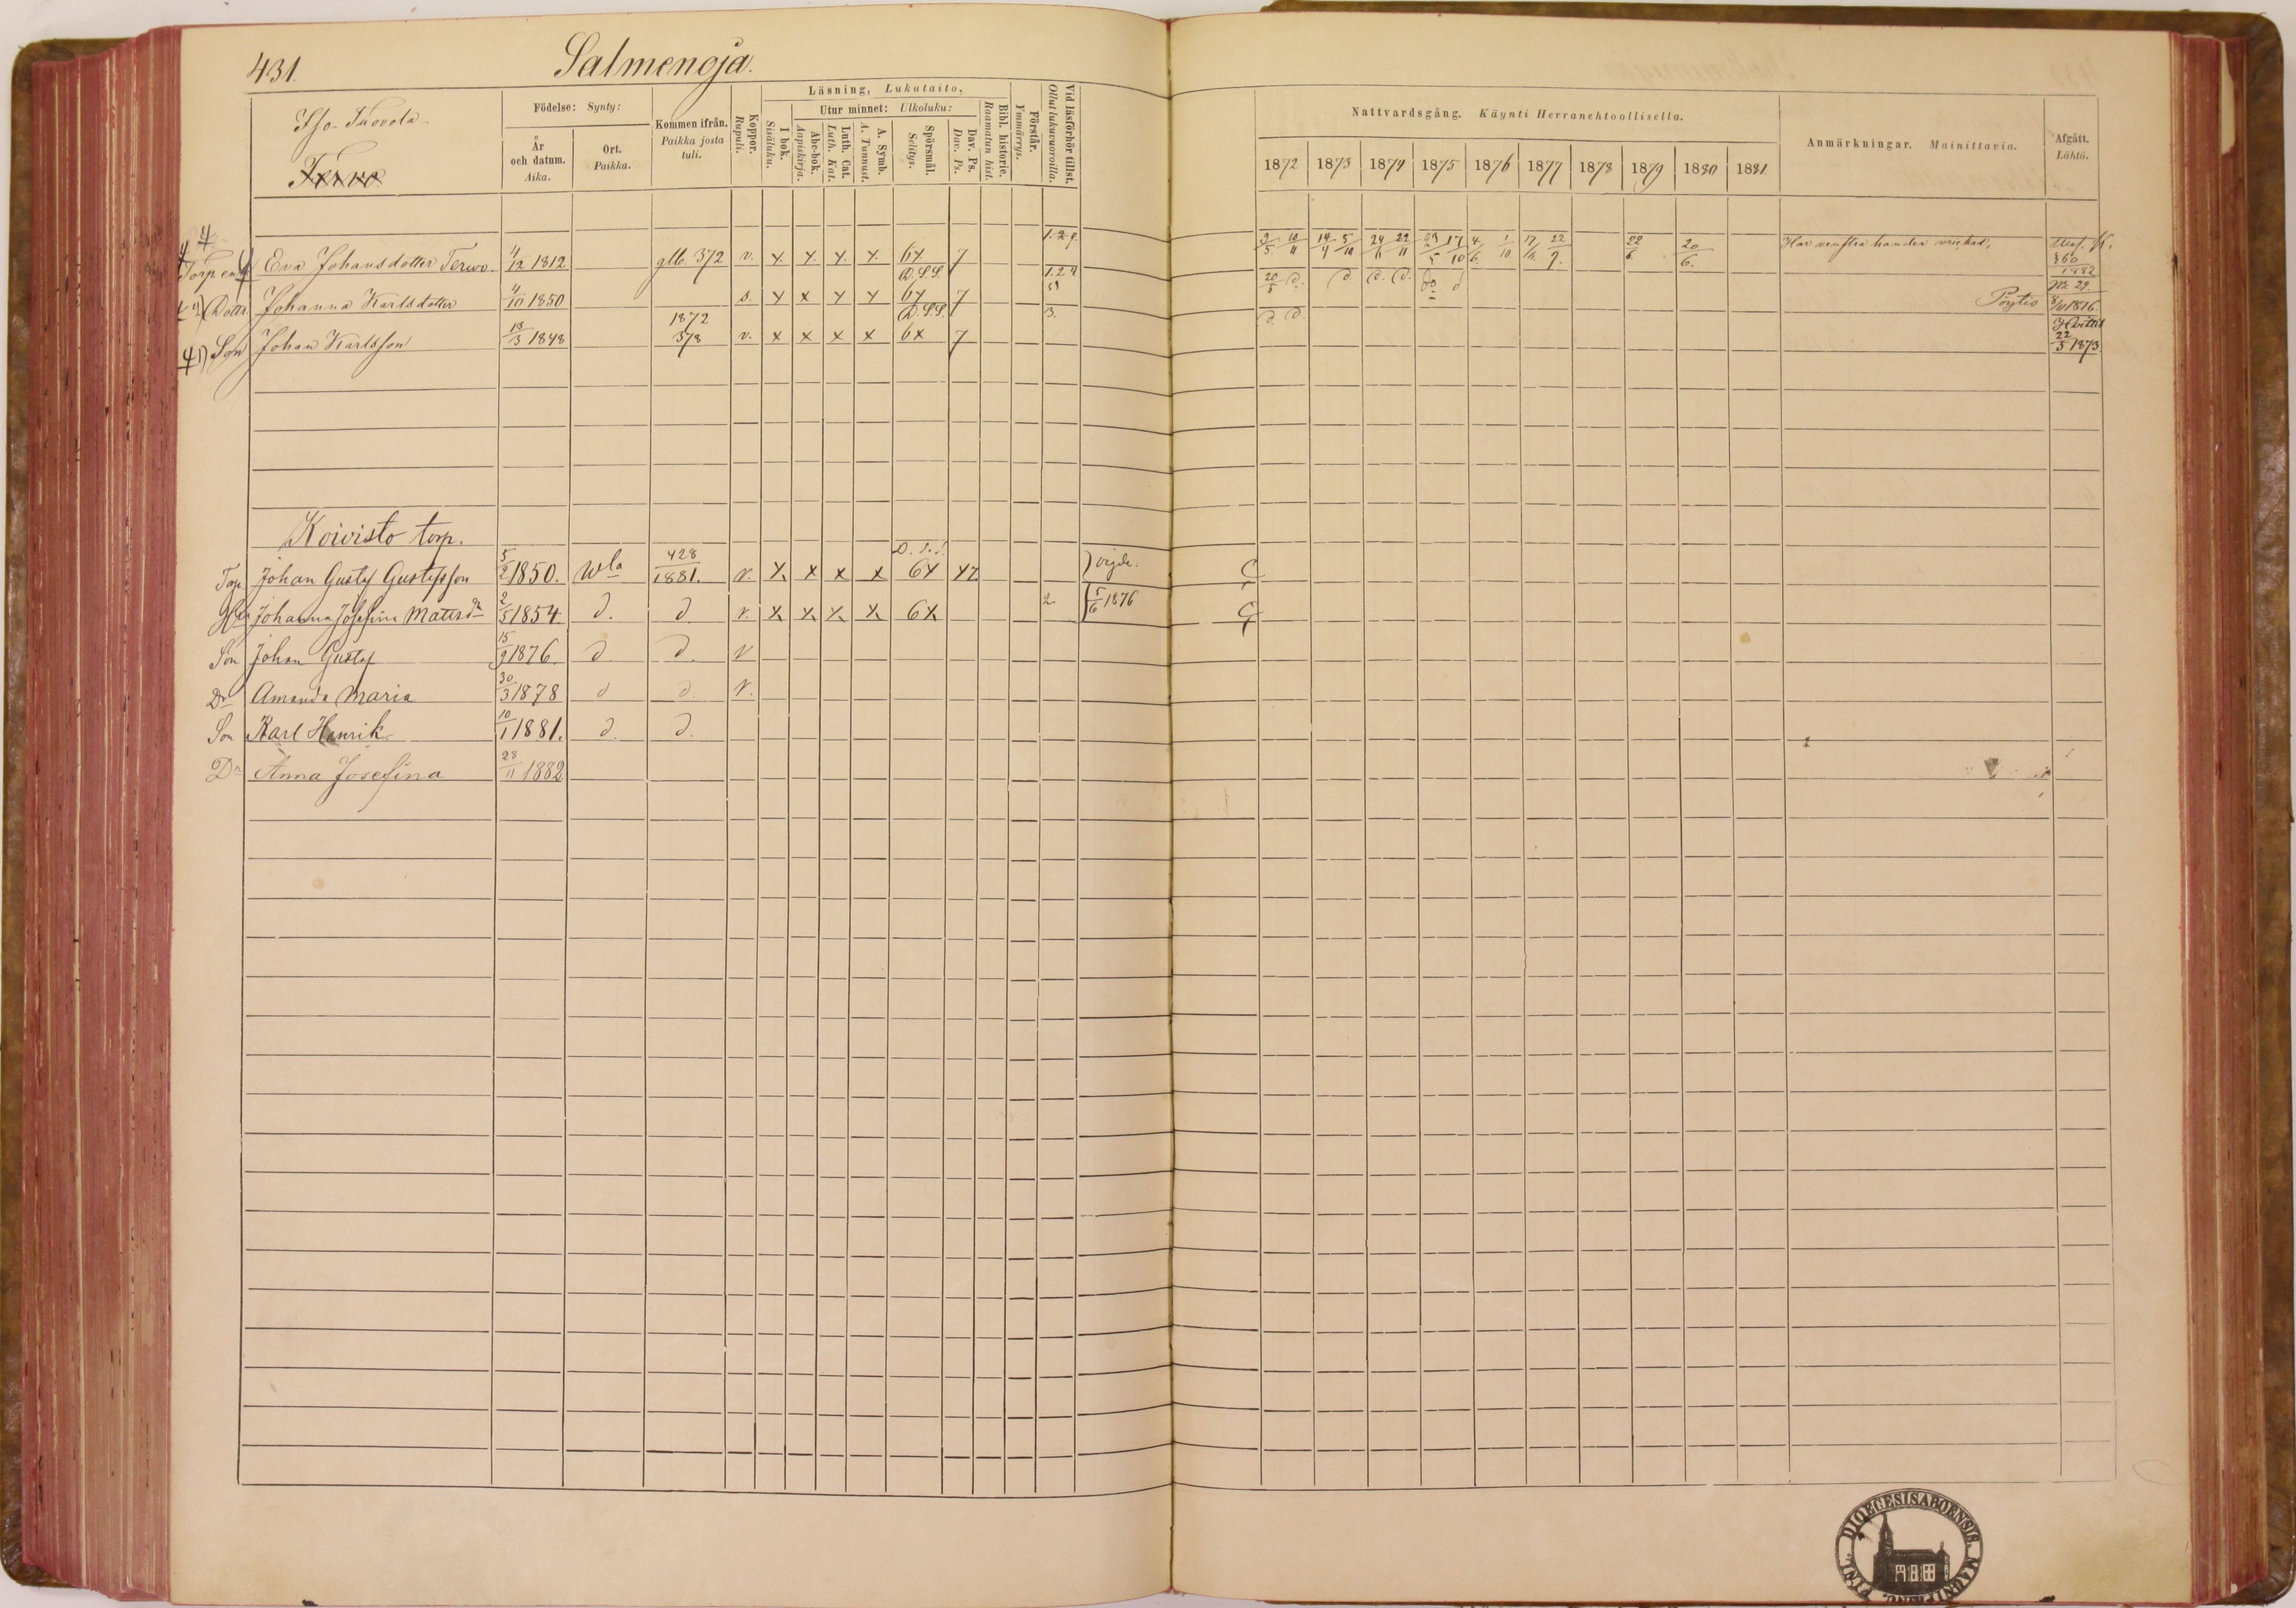 431.
Salmenoja.
Födelse: Synty:
År och datum. Aika.
Ort. Paikka.
Kommen ifrån. Paikka josta tuli.
Koppor. Rupuli.
Läsning, Lukutaito,
I bok. Sisäluku.
Utur minnet: Ulkoluku:
Abc-bok. Aapiskirja.
Luth. Cat. Luth. Kat.
A. Symb. A. Tunnust.
Spörsmål. Selitys.
Dav. Ps. Dav. Ps.
Bibl. historie. Raamatun hist.
Förstår. Ymmärrys.
Vid läsförhör tillst. Ollut lukuvuoroilla.
Nattvardsgång. Käynti Herranehtoollisella.
1872 1873 1874 1875 1876 1877 1878 1879 1880 1881
Anmärkningar. Mainittavia.
Afgått. Lähtö.
Iso-Tuovola
Terwo
Torp enk Eva Johansdotter Terwo. 4/12 1812 glb. 372 v. x x x x 6x 7 1.2.9.
9/5 10/11 14/4 5/10 24/6 22/11 17/10 4/6 1/10 22/9. 22/6. 20/6. Har venstra handen
360 1882
Dottr. Johanna Karlsdotter 4/10 1850 s. x x x x D.S.S. 6x 7 1.2.4
20/5 d. d. d. d. d Pöytis 1876
1) Son Johan Karlsson 13/3 1848 1872 378 v. x x x x D.S.S. 6x 7 3.
d. d. 22/5 1873
Koivisto torp.
Torp. Johan Gustaf Gustafsson 5/2 1850. Wla 428 1881. v. x x x x D.S.S. 6x x7 vigde.
Hu Johanna Josefina Matts dr 2/5 1854 d. d. v. x x x x 6x 2 5/6 1876
Son Johan Gustaf 15/9 1876. d d. v
Dr Amanda Maria 30/3 1878 d d. v.
Son Karl Henrik 10/1 1881. d. d.
Dr Anna Josefina 28/11 1882